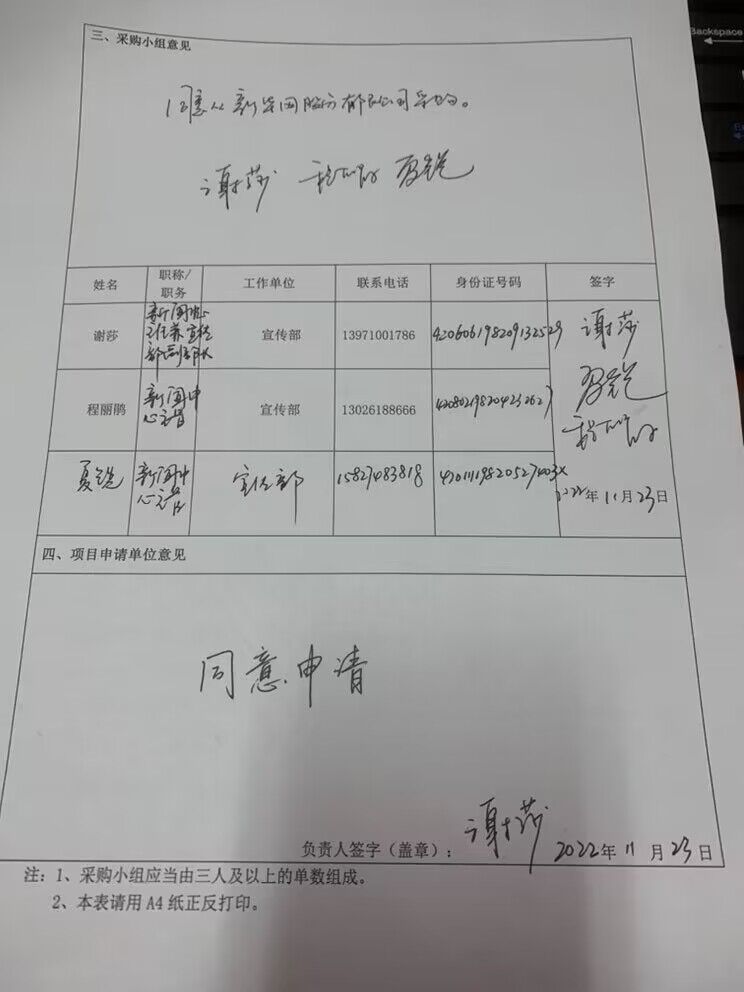 Backspace
三、采购小组意见
同意从新华网股份有限公司采购。
谢莎 程丽鹃 夏锐
姓名 职称/职务 工作单位 联系电话 身份证号码 签字
谢莎 新闻中心主任兼宣传部副部长 宣传部 13971001786 420606198209132529 谢莎
程丽鹃 新闻中心记者 宣传部 13026188666 夏锐
程丽鹃
夏锐 新闻中心记者 宣传部 15827483818 42011119820527403X
2022年11月23日
四、项目申请单位意见
同意申请
负责人签字（盖章）： 谢莎 2022年11月23日
注：1、采购小组应当由三人及以上的单数组成。
2、本表请用A4纸正反打印。